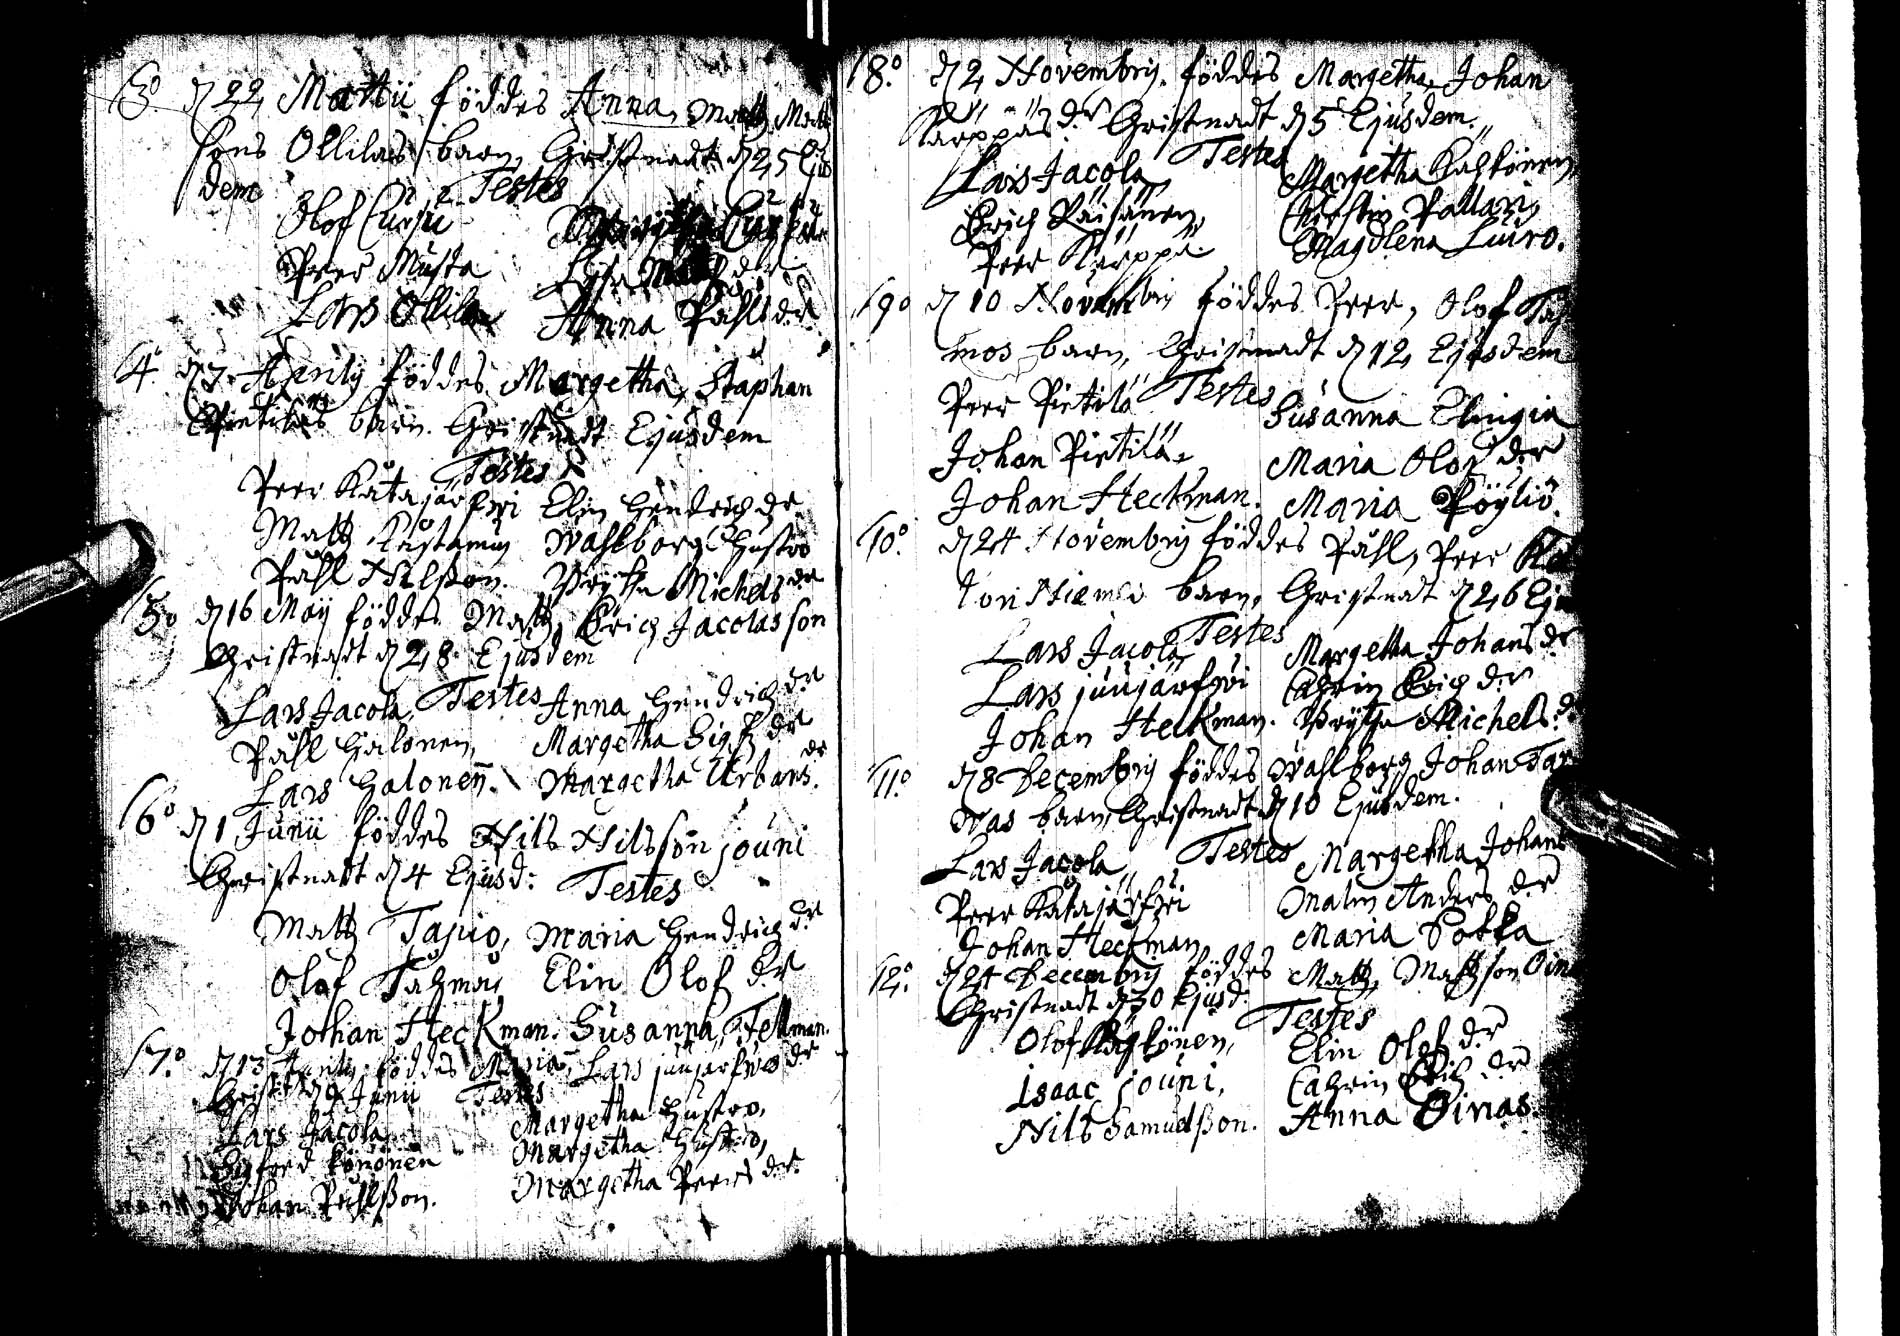 3° d 22 Martii föddes Anna, Matts Matts
sons Ollilas barn, Christnadt d 25 Ejus
dem Testes
Olof Cursu
Peer Musta Lysa Matts dr
Lars Ollila Anna Påhls dr.
4° d 7 Aprilis föddes Margetha, Staphan
Pietiläs barn. Christnadt Ejusdem
Testes
Peer Katajärfwi Elin Hendrich dr
Matts Wahlborg Hustro
Påhl Nilsson. Brytha Michels dr
5° d 16 Maij föddes Matts, Erich Jacolas son
Christnadt d 28 Ejusdem
Lars Jacola, Testes Anna Hendrich dr
Påhl Halonen, Margetha Sigfr dr
Lars Halonen. Margetha Urbans dr.
6° d 1 Junii föddes Nils Nilsson jouni
Christnadt d 4 Ejusd: Testes
Matts Tapio, Maria Hendrich dr
Olof Tahmas Elin Olof dr
Johan Heckman. Susanna Fellman.
7° d 13 föddes Maria, Lars juujärfwes dr
Christ: d 9 Junii Testes
Lars Jacola Margetha Hustro,
Sigfred könönen Margetha Hustro,
Johan Påhlsson. Margetha Peers dr
8° d 2 Novembris. föddes Margetha Johan
Karppäs dr Christnadt d 5 Ejusdem.
Lars Jacola Testes Margetha Kähkönen,
Erich Räisänen, Christin Pallari,
Peer Karppä. Magdlena Luiro.
9° d 10 Novembris föddes Peer, Olof Tah
mos barn, Christnadt d 12 Ejusdem
Peer Pietilä Testes Susanna Elingia
Johan Pietilä, Maria Olof dr
Johan Heckman. Maria Pöyliö.
10° d 24 Novembris föddes Påhl, Peer
Niemis barn, Christnadt d 26 Eju
Lars Jacola Testes Margetha Johans dr
Lars juujärfwi Cahrin Erich dr
Johan Heckman. Brytha Michels d
11° d 8 Decembris föddes Wahlborg Johan Tar
was barn, Christnadt d 10 Ejusdem.
Lars Jacola, Testes Margetha Johans
Peer Katajärfwi Malin Anders dr
Johan Heckman Maria Sokka
12° d 24 Decembris föddes Matts, Matts son Oina
Christnadt d 30 Ejusd: Testes
Olof Elin Olof dr
Isaac jouni, Cahrin Erich dr
Nils Samuelsson. Anna Oinas.